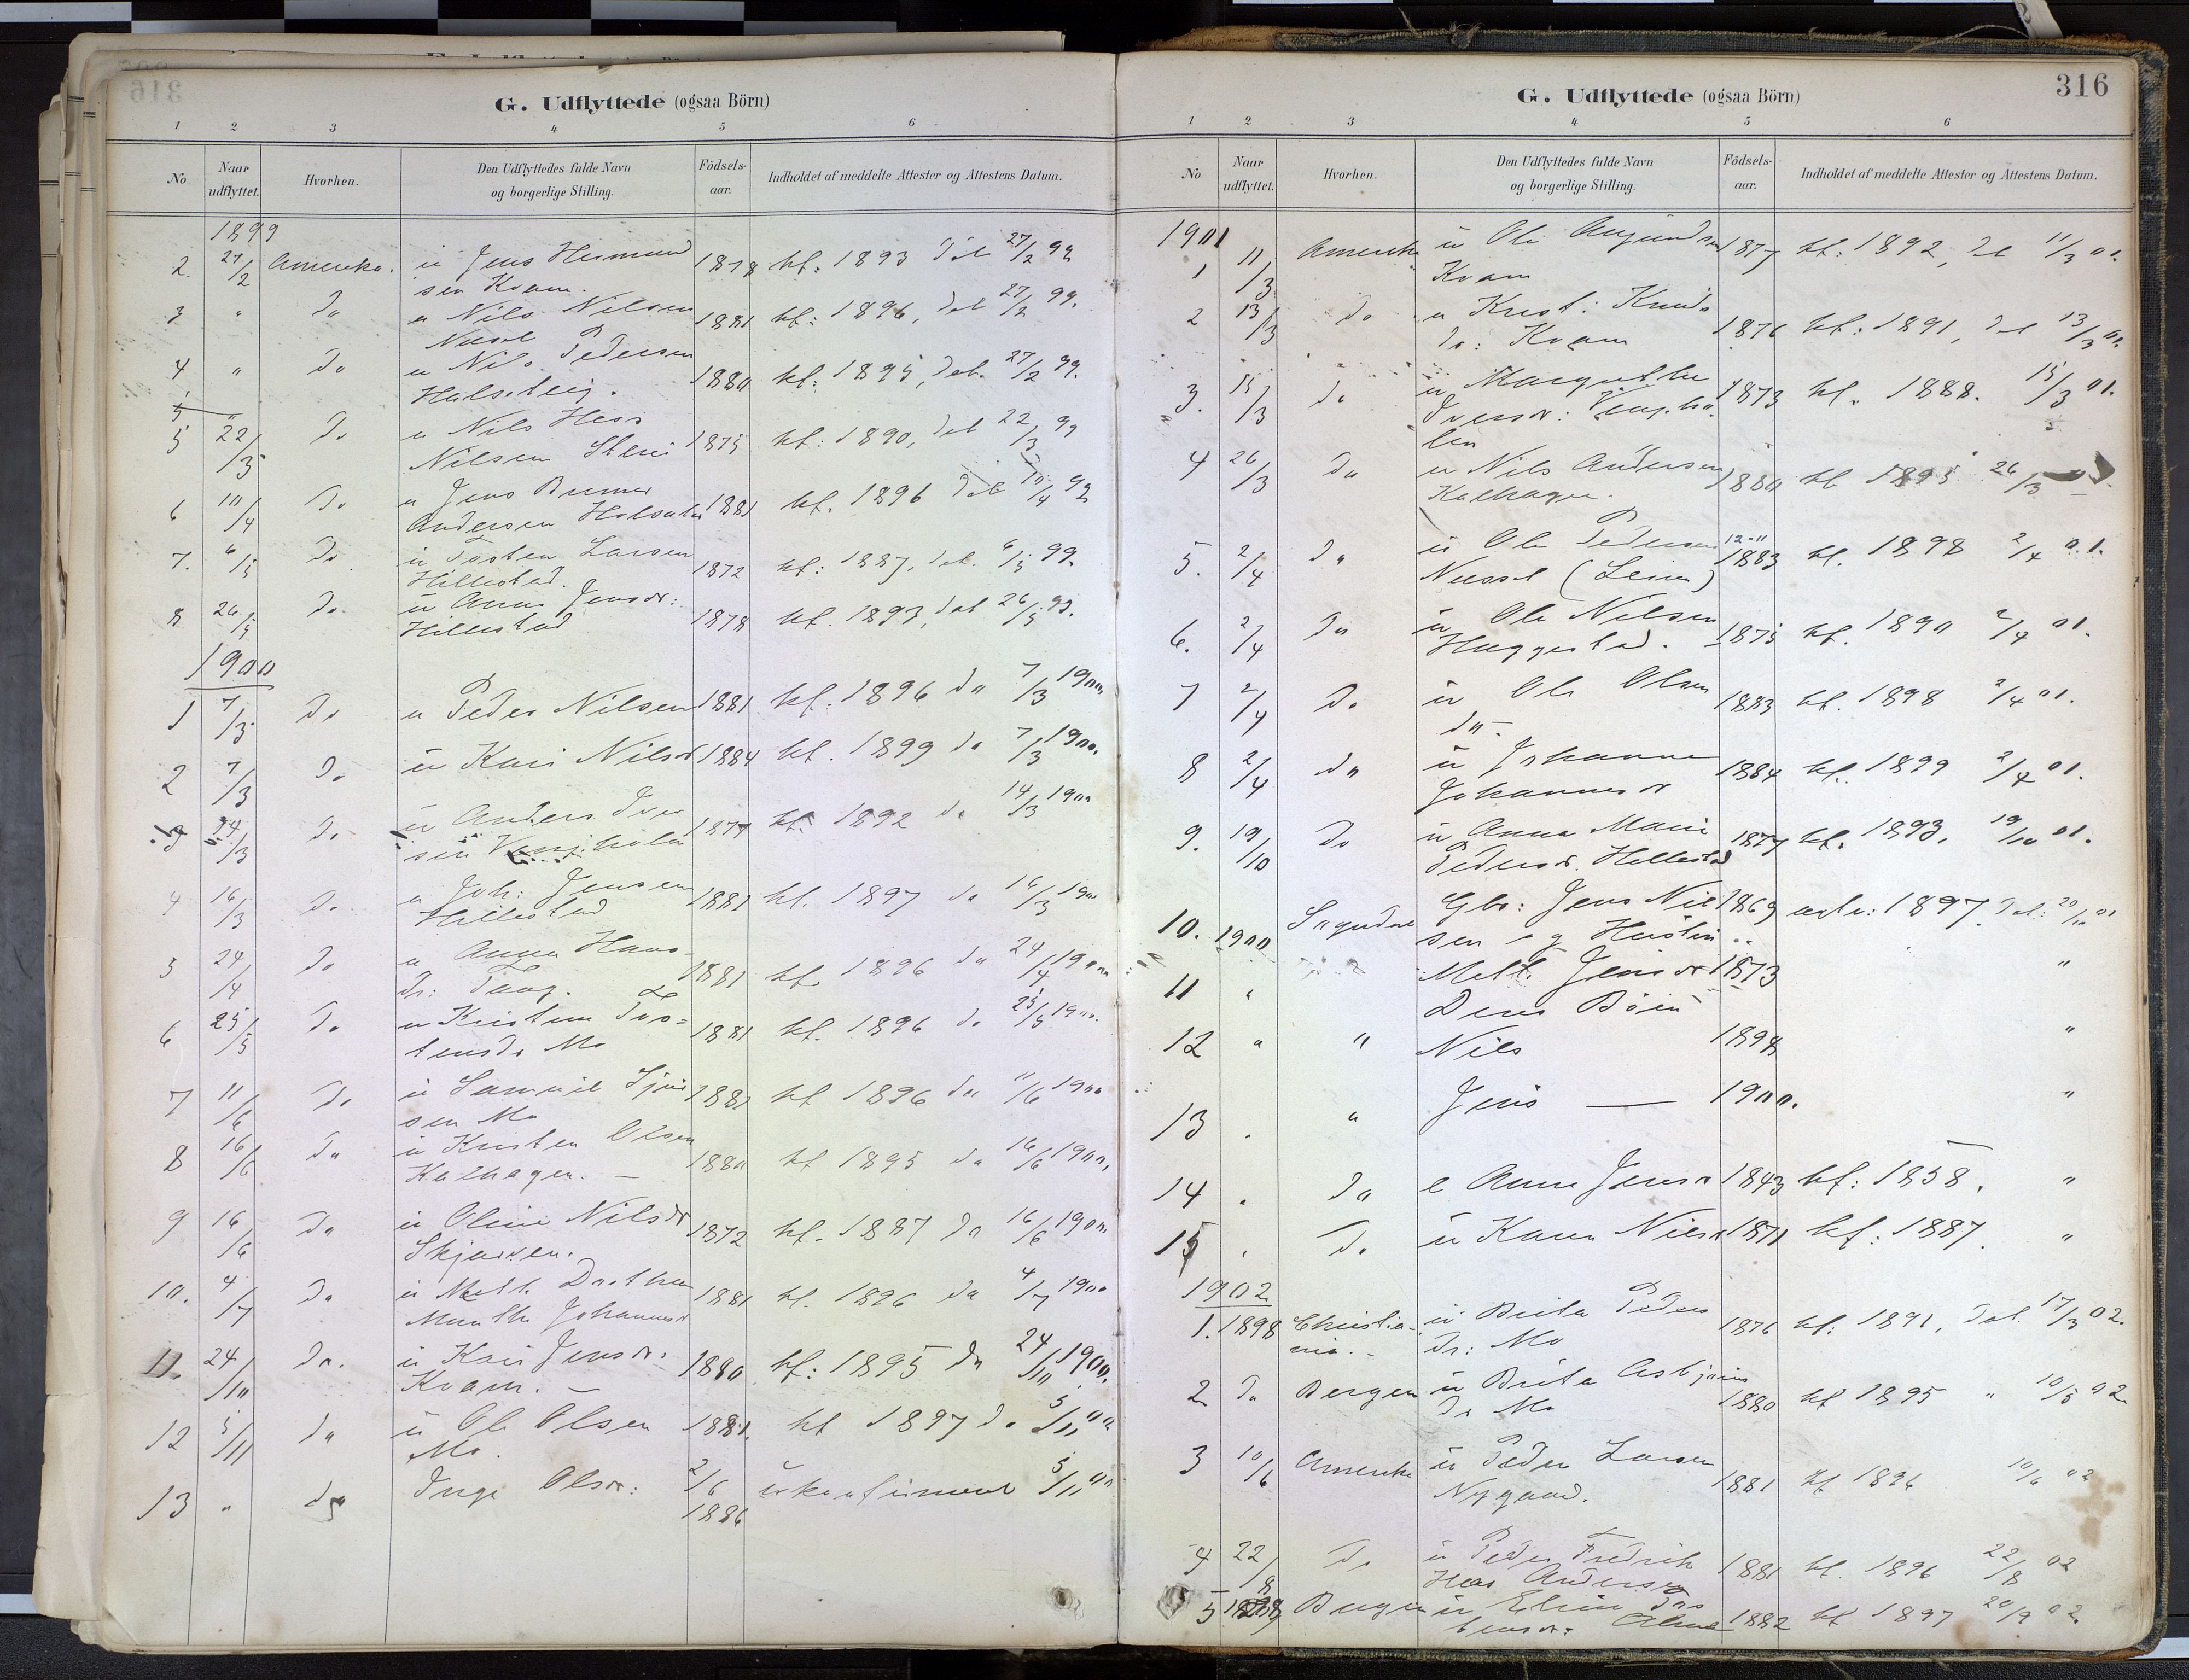 G. Udflyttede (ogsaa Börn)
1 2 3 4 5 6
No Naar udflyttet. Hvorhen. Den Udflyttedes fulde Navn og borgerlige Stilling. Födsels-aar. Indholdet af meddelte Attester og Attestens Datum.
1899
2. 27/2 Amerika. u Jens Hermund 1878 kf: 1893 Dat 27/2 99
sen Kvam.
3 " Do u Nils Nilsen 1881 kf: 1896, Dat 27/2 99.
4 " Do u Nils Pedersen 1880 kf: 1895, Dat. 27/2 99.
5 22/3 Do u Nils Hess 1875 kf: 1890, Dat 22/3 99
Nilsen
6 11/4 Do u Jens 1881 kf. 1896 Dat /4 99
Andersen
7. 6/5 Do u Tosten Larsen 1872 kf: 1887, Dat. 6/5 99.
Hillestad.
8 26/5 Do u Anna Jensdr: 1878 kf. 1893, Dat 26/5 99.
Hillestad
1900
1 7/3 Do u Peder Nilsen 1881 kf. 1896 Do 7/3 1900
2 7/3 Do u Kari Nilsd 1884 kf. 1899 Do 7/3 1900.
3 14/3 Do u Anders Iver 1877 kf. 1892 Do 14/3 1900
sen
4 16/3 Do u Joh: Jensen 1881 kf. 1897 Do 16/3 1900
Hillestad
5 24/4 Do u Anna Hans- 1881 kf. 1896 Do 24/4 1900
Dr:
6 25/5 Do u Kristine Tos= 1881 kf. 1896 Do 25/5 1900.
tensdr Mo
7 11/6 Do u Samuel 1881 kf 1896 Do 11/6 1900
sen Mo
8 16/6 Do u Kristen Olsen 1880 kf 1895 Do 16/6 1900,
Kalhagen. —
9 16/6 Do u Oline Nilsdr 1872 kf. 1887 Do 16/6 1900.
Skjerven.
10. 4/7 Do u Mett. Dorthea 1881 kf. 1896 Do 4/7 1900
Munthe Johannesd
11. 24/10 Do. u Kari Jensdr. 1880 kf: 1895 Do 24/10 1900.
Kvam. —
12 5/11 Do u Ole Olsen 1881. kf 1897 Do 5/11 00
Mo.
13 " Do Inge Olsdr: 2/6 ukonfirmeret 5/11 00
1886
G. Udflyttede (ogsaa Börn) 316
1 2 3 4 5 6
No Naar udflyttet. Hvorhen. Den Udflyttedes fulde Navn og borgerlige Stilling. Födsels-aar. Indholdet af meddelte Attester og Attestens Datum.
1901
1 11/3 Amerika u Ole 1877 kf: 1892, Dt 11/3 01.
Kvam
2 13/3 Do u Krist: Knuds 1876 kf: 1891, Dat 13/3 01.
dr: Kvam
3. 15/3 Do u Margrethe 1873 kf. 1888. 15/3 01.
Iversdr:
4 26/3 Do u Nils Andersen 1880 kf 1895 26/3
Kalhagen.
5. 2/4 Do u Ole Pedersen 12-11 1883 kf. 1898 2/4 01.
6. 2/4 Do u Ole Nilsen 1875 kf. 1890 2/4 01.
Huggestad.
7 2/4 Do u Ole Olsen 1883 kf. 1898 2/4 01.
do.-
8 2/4 Do u Johanne 1884 kf. 1899 2/4 01.
Johannesdr
9. 19/10 Do u Anna Marie 1877 kf. 1893, 19/10 01.
Pedersdr. Hillestad
10. 1900 Sogndal Gbr: Jens Nil 1869 1897. Dat: 20/10 01
sen og Hustru
11 " Mett. Jensdr 1873 "
Deres Börn
12 " " Nils 1898 "
13 " " Jens — 1900. "
14 " Do e Anna Jensd 1843 kf: 1858. "
15 " Do u Karen Nilsd 1871 kf: 1887. "
1902
1. 1898 Christia- u Brita Peders 1876 kf: 1891, Dat 17/3 02.
nia.- dr: Mo
2 Do Bergen u Brita Asbjørns 1880 kf 1895 " 10/5 02
dr Mo
3 10/6 Amerika u Peder Larsen 1881 kf 1896 10/6 02
Nygaard.
4 22/8 Do u Peder Fredrik 1881 kf. 1896 22/8 02
Hess Andersen
5 Bergen u Eline Tos 1882 kf 1897 20/9 02.
tensdr: